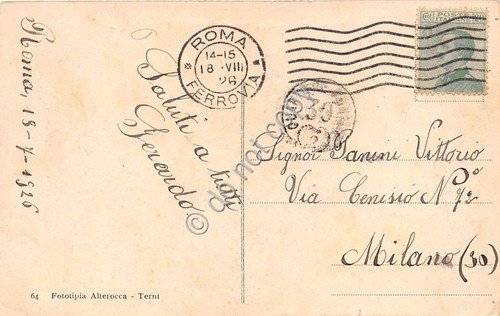 Roma, 18-7-1926
Saluti a tutti
Gerardo
ROMA
14-15
18 · VIII
26
FERROVIA
30
Signor Vittorio
Via Cenisio N° 72
Milano (30)
64 Fototipia Alterocca - Terni
© do not copy